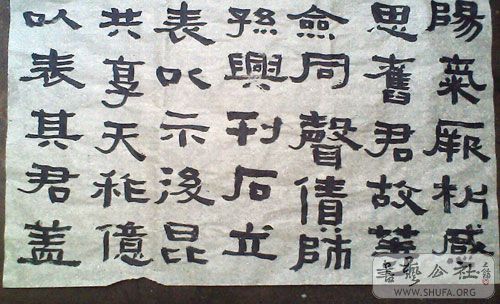 陽氣厥析感
思舊君故
僉同聲債師
孫興刊石立
表以示後昆
共享天祚億
以表其君盖
書藝公社
WWW.SHUFA.ORG